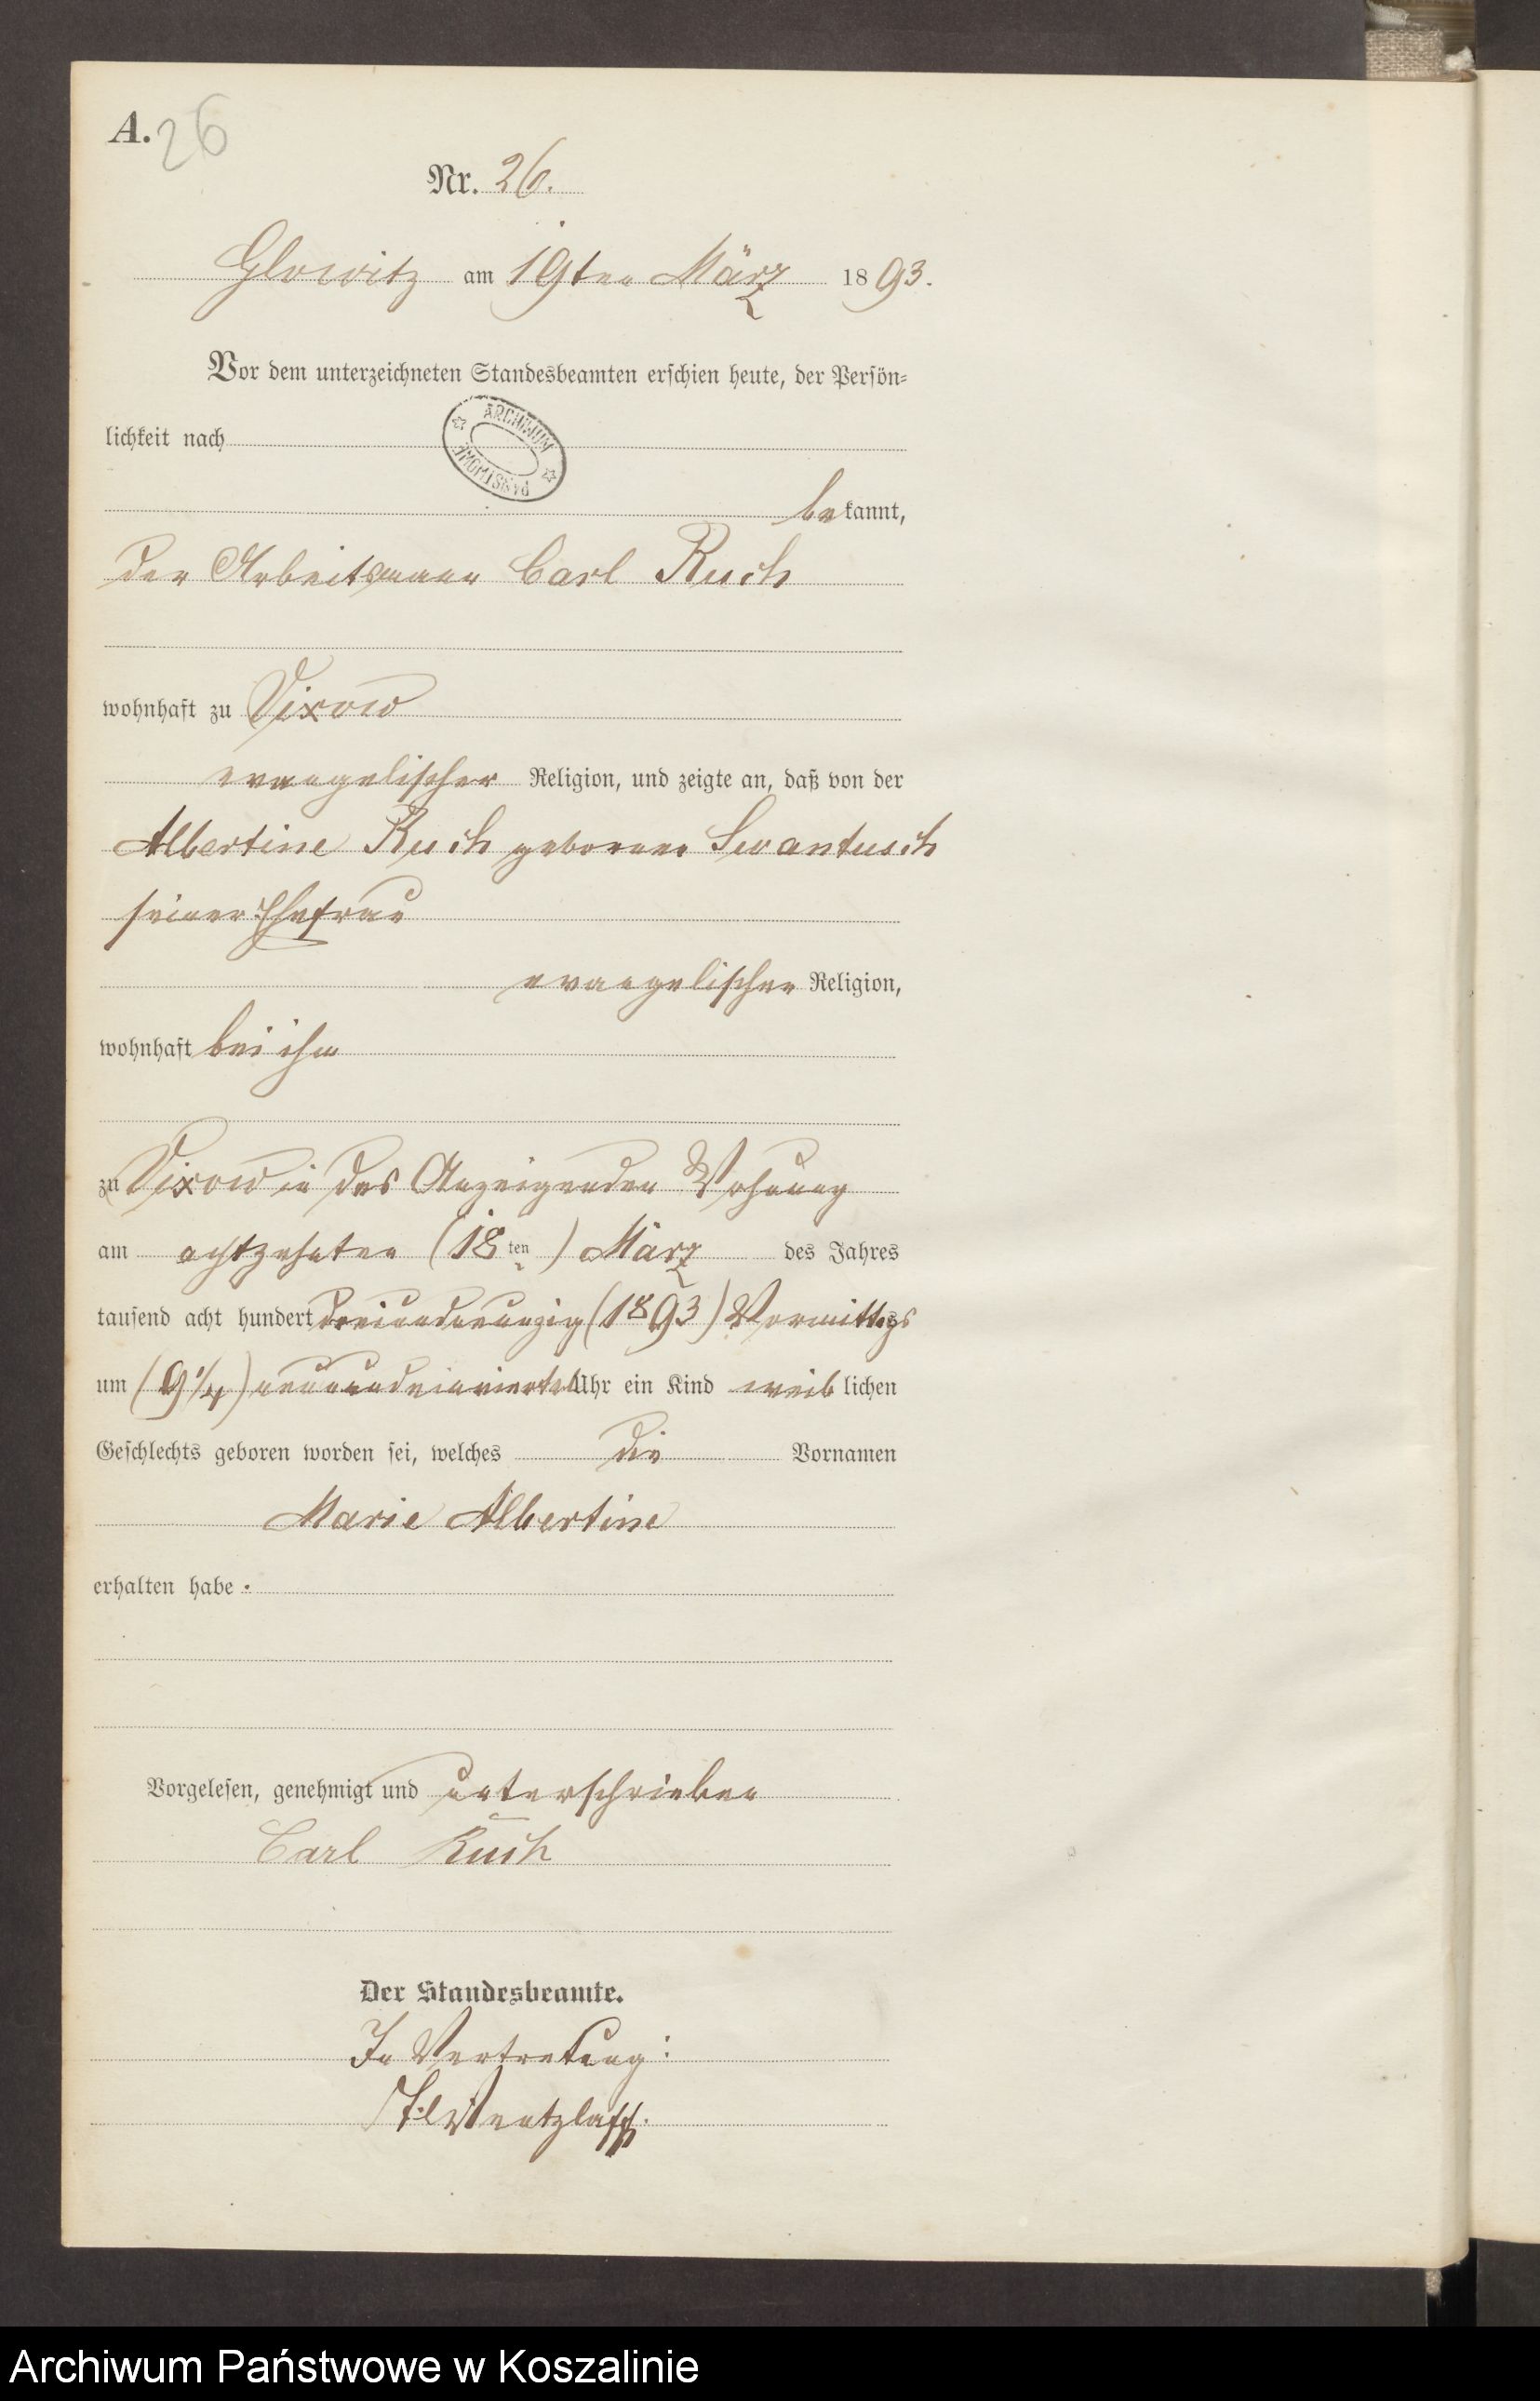 A. 26
Nr. 26.
Glowitz am 19ten März 1893.
Vor dem unterzeichneten Standesbeamten erschien heute, der Persön-
lichkeit nach
ARCHIWUM PAŃSTWOWE
bekannt,
der Arbeitsmann Carl Ruch
wohnhaft zu Vixow
evangelischer Religion, und zeigte an, daß von der
Albertine Ruch geborenen Swantusch
seiner Ehefrau
evangelischer Religion,
wohnhaft bei ihm
zu Vixow in des Anzeigenden Wohnung
am achtzehnten (18ten) März des Jahres
tausend acht hundert dreiundneunzig (1893) Vormittags
um (9¼) neunundeinviertel Uhr ein Kind weiblichen
Geschlechts geboren worden sei, welches die Vornamen
Marie Albertine
erhalten habe.
Vorgelesen, genehmigt und unterschrieben
Carl Ruch
Der Standesbeamte.
In Vertretung:
Wentzlaff.
Archiwum Państwowe w Koszalinie